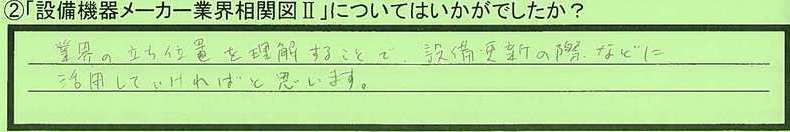 ②「設備機器メーカー業界相関図Ⅱ」についてはいかがでしたか？
業界の立ち位置を理解することで、設備更新の際などに
活用していければと思います。